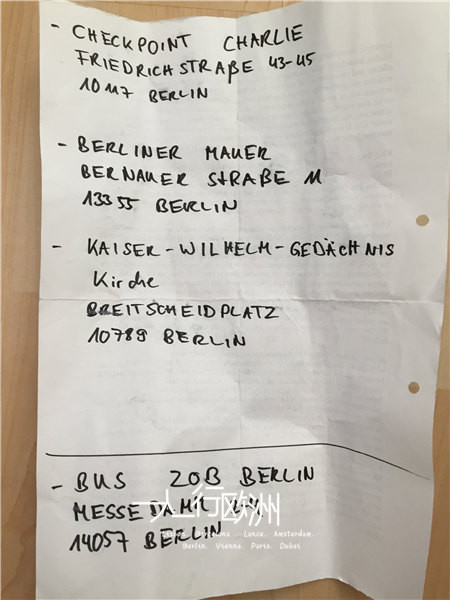 - CHECKPOINT CHARLIE
FRIEDRICHSTRAßE 43-45
10117 BERLIN
- BERLINER MAUER
BERNAUER STRAßE 11
13355 BERLIN
- KAISER-WILHELM-GEDÄCHNIS
Kirche
BREITSCHEIDPLATZ
10789 BERLIN
- BUS ZOB BERLIN
MESSEDAMM
14057 BERLIN
一人行欧洲
Barcelona. Lucia. Amsterdam.
Berlin. Vienna. Paris. Dubai